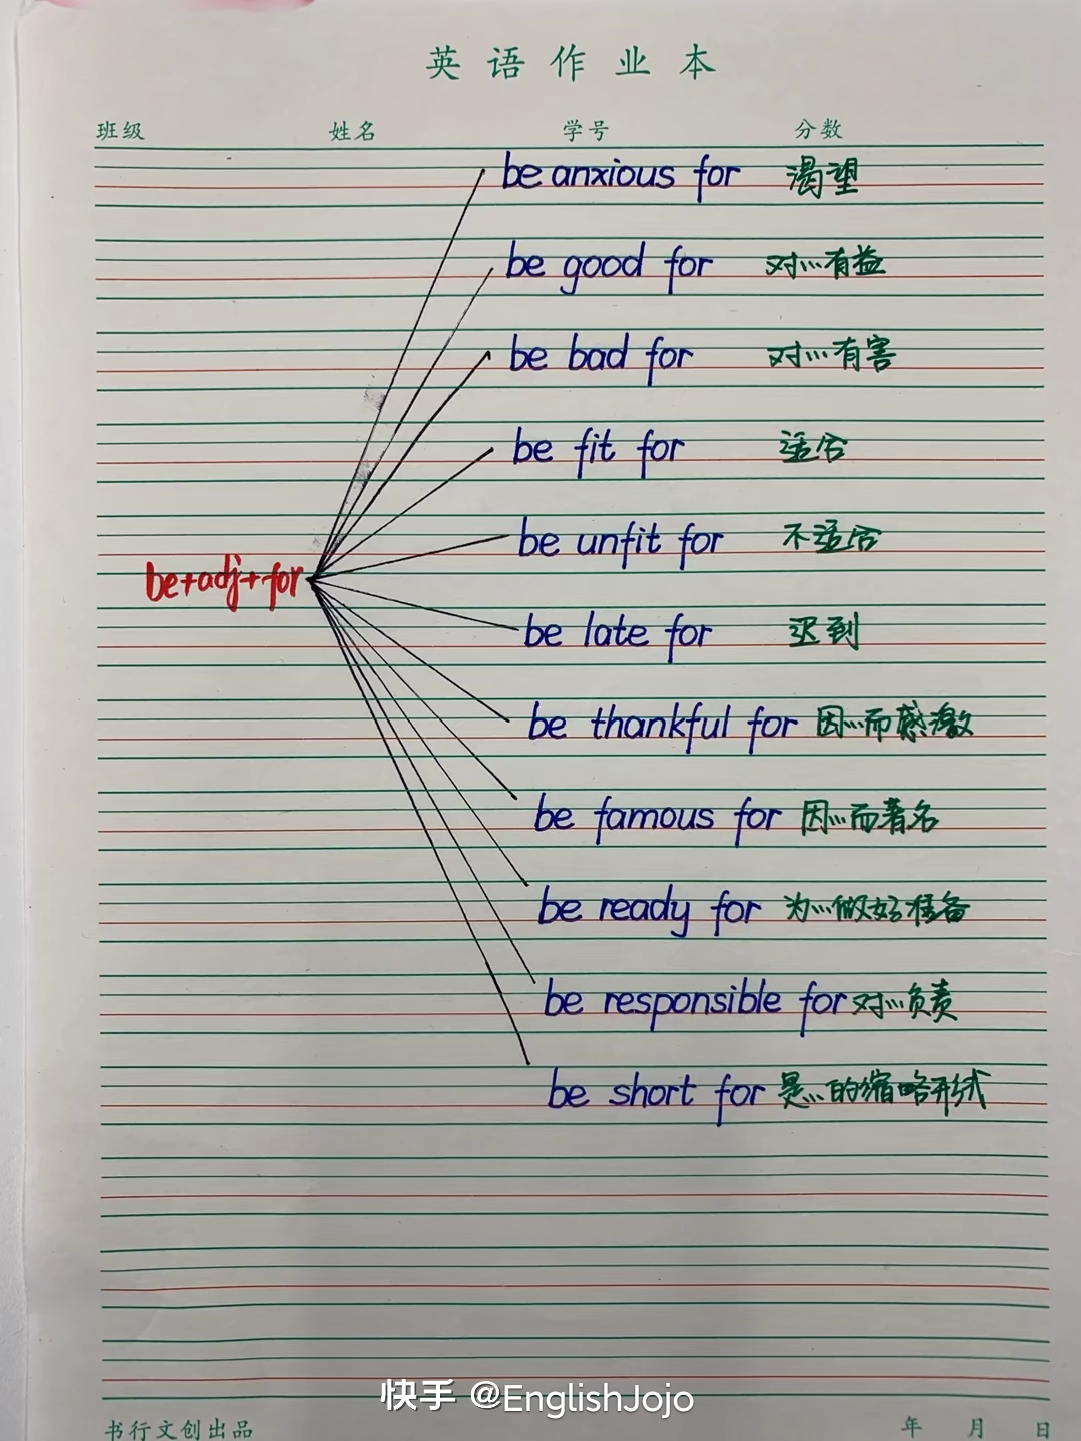 英语作业本
班级 姓名 学号 分数
be anxious for 渴望
be good for 对...有益
be bad for 对...有害
be fit for 适合
be unfit for 不适合
be+adj+for
be late for 迟到
be thankful for 因...而感激
be famous for 因...而著名
be ready for 为...做好准备
be responsible for 对...负责
be short for 是...的缩略形式
快手 @EnglishJojo
书行文创出品 年 月 日